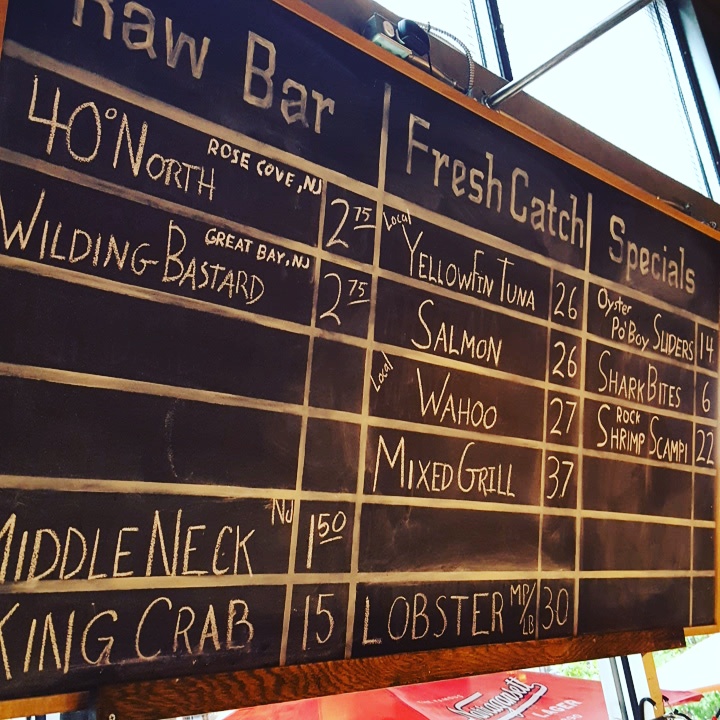 Raw Bar
40°NORTH ROSE COVE, NJ 2 75
WILDING BASTARD GREAT BAY, NJ 2 75
MIDDLE NECK NJ 1 50
KING CRAB 15
Fresh Catch
Local YELLOWFIN TUNA 26
SALMON 26
Local WAHOO 27
MIXED GRILL 37
LOBSTER MP/LB 30
Specials
Oyster Po'Boy SLIDERS 14
SHARK BITES 6
ROCK SHRIMP SCAMPI 22
Narragansett
LAGER